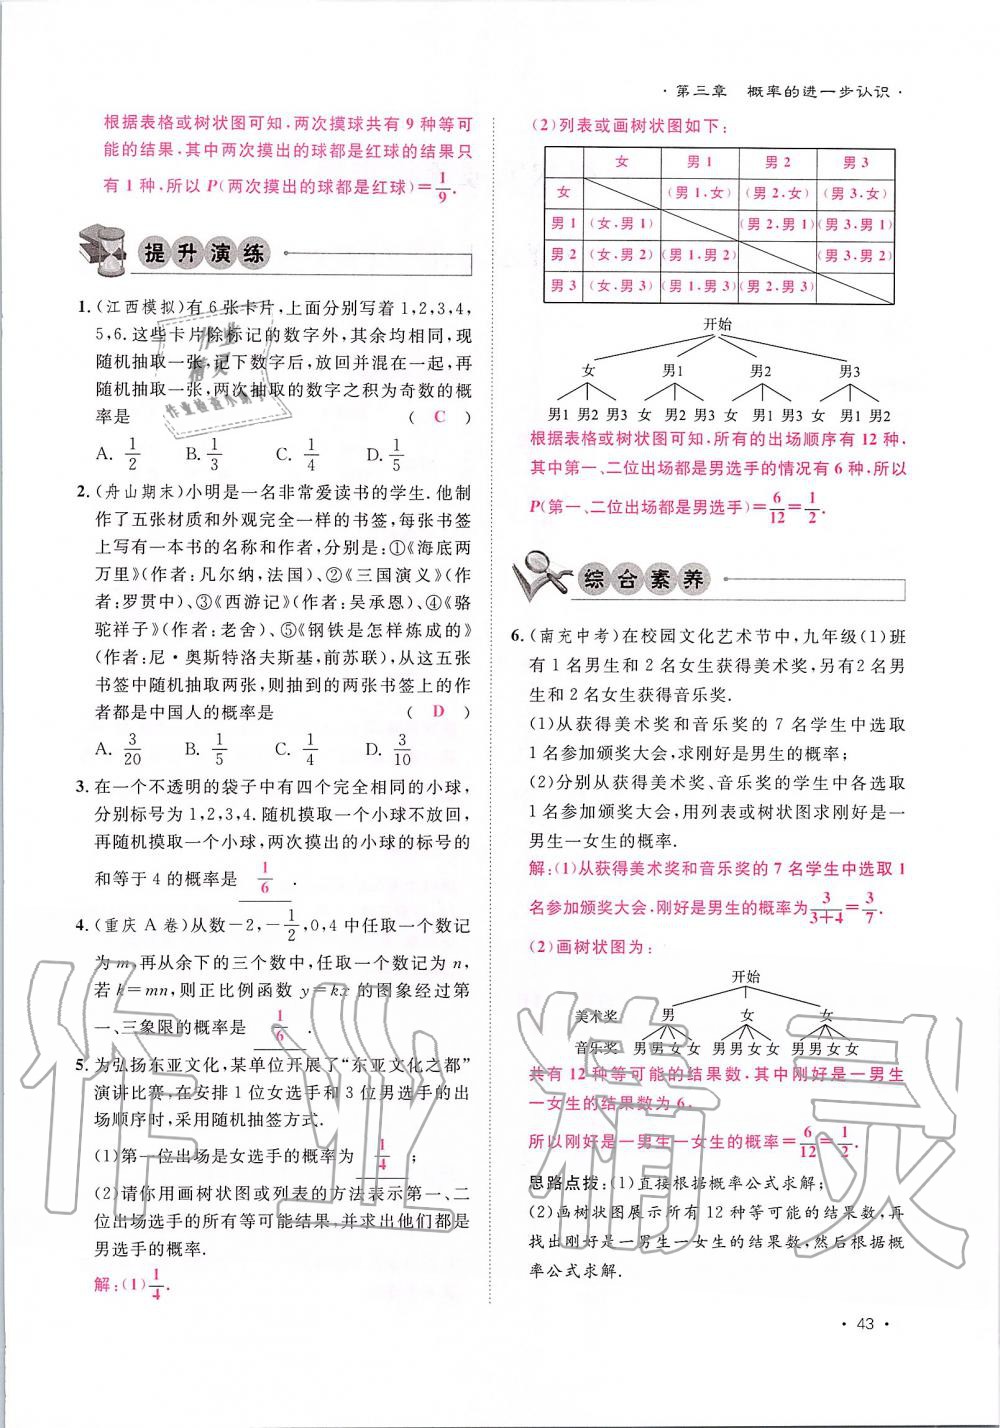 ·第三章　概率的进一步认识·
根据表格或树状图可知,两次摸球共有 9 种等可
能的结果,其中两次摸出的球都是红球的结果只
有 1 种,所以 P(两次摸出的球都是红球)=1/9.
提升演练
1.(江西模拟)有 6 张卡片,上面分别写着 1,2,3,4,
5,6.这些卡片除标记的数字外,其余均相同,现
随机抽取一张,记下数字后,放回混合在一起,再
随机抽取一张,两次抽取的数字之积为奇数的概
率是 ( C )
A. 1/2 B. 1/3 C. 1/4 D. 1/5
2.(舟山期末)小明是一名非常爱读书的学生.他制
作了五张材质和外观完全一样的书签,每张书签
上写有一本书的名称和作者,分别是:①《海底两
万里》(作者:凡尔纳,法国)、②《三国演义》(作
者:罗贯中)、③《西游记》(作者:吴承恩)、④《骆
驼祥子》(作者:老舍)、⑤《钢铁是怎样炼成的》
(作者:尼·奥斯特洛夫斯基,前苏联),从这五张
书签中随机抽取两张,则抽到的两张书签上的作
者都是中国人的概率是 ( D )
A. 3/20 B. 1/5 C. 2/5 D. 3/10
3.在一个不透明的袋子中有四个完全相同的小球,
分别标号为 1,2,3,4.随机摸取一个小球不放回,
再随机摸取一个小球,两次摸出的小球的标号的
和等于 4 的概率是 1/6 .
4.(重庆 A 卷)从数-2,-1/2,0,4 中任取一个数记
为 m,再从余下的三个数中,任取一个数记为 n,
若 k=mn,则正比例函数 y=kx 的图象经过第
一、三象限的概率是 1/6 .
5.为弘扬东亚文化,某单位开展了“东亚文化之都”
演讲比赛,在安排 1 位女选手和 3 位男选手的出
场顺序时,采用随机抽签方式.
(1)第一位出场是女选手的概率为 1/4 ;
(2)请你用画树状图或列表的方法表示第一、二
位出场选手的所有等可能结果,并求出他们都是
男选手的概率.
解:(1)1/4.
(2)列表或画树状图如下:
女 男 1 男 2 男 3
女 (男 1,女) (男 2,女) (男 3,女)
男 1 (女,男 1) (男 2,男 1) (男 3,男 1)
男 2 (女,男 2) (男 1,男 2) (男 3,男 2)
男 3 (女,男 3) (男 1,男 3) (男 2,男 3)
开始
女 男1 男2 男3
男1 男2 男3 女 男2 男3 女 男1 男3 女 男1 男2
根据表格或树状图可知,所有的出场顺序有 12 种,
其中第一、二位出场都是男选手的情况有 6 种,所以
P(第一、二位出场都是男选手)=6/12=1/2.
综合素养
6.(南充中考)在校园文化艺术节中,九年级(1)班
有 1 名男生和 2 名女生获得美术奖,另有 2 名男
生和 2 名女生获得音乐奖.
(1)从获得美术奖和音乐奖的 7 名学生中选取
1 名参加颁奖大会,求刚好是男生的概率;
(2)分别从获得美术奖、音乐奖的学生中各选取
1 名参加颁奖大会,用列表或树状图求刚好是一
男生一女生的概率.
解:(1)从获得美术奖和音乐奖的 7 名学生中选取 1
名参加颁奖大会,刚好是男生的概率为3/(3+4)=3/7.
(2)画树状图为:
开始
美术奖 男 女 女
音乐奖 男男女女 男男女女 男男女女
共有 12 种等可能的结果数,其中刚好是一男生
一女生的结果数为 6,
所以刚好是一男生一女生的概率=6/12=1/2.
思路点拨:(1)直接根据概率公式求解;
(2)画树状图展示所有 12 种等可能的结果数,再
找出刚好是一男生一女生的结果数,然后根据概
率公式求解.
·43·
作业精灵
作业
精灵
作业检查小助手